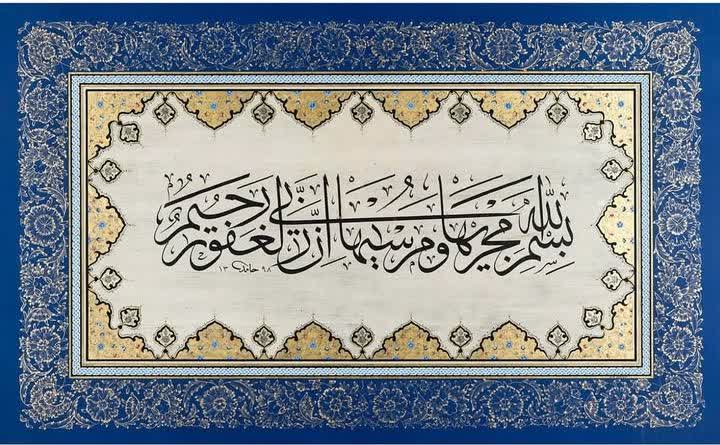 بسم الله مجريها ومرسيها ان ربي لغفور رحيم
حامد ١٣٩٨